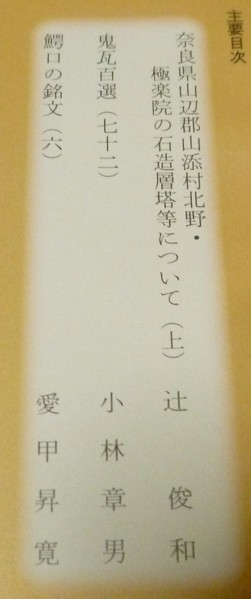 主要目次
奈良県山辺郡山添村北野・
極楽院の石造層塔等について（上）　辻俊和
鬼瓦百選（七十二）　小林章男
鰐口の銘文（六）　愛甲昇寛